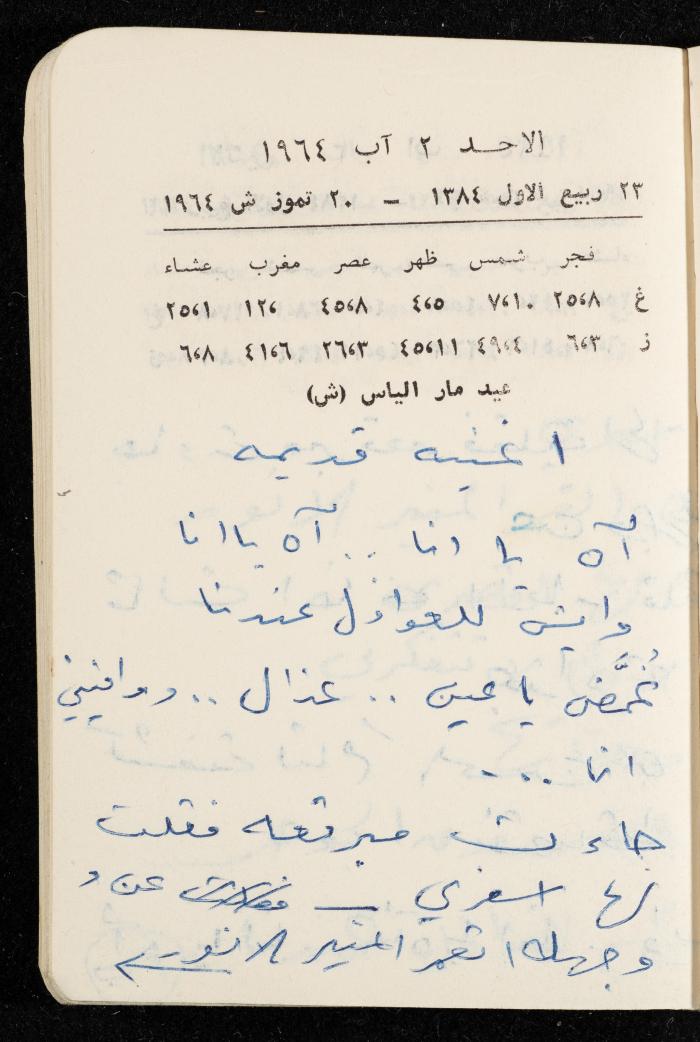 الاحد ٢ آب ١٩٦٤
٢٣ ربيع الاول ١٣٨٤ – ٢٠ تموز ش ١٩٦٤
فجر شمس ظهر عصر مغرب عشاء
غ ٢٥،٨ ٧،١٠ ٤،٥ ٤٥،٨ ١٢، ٢٥،١
ز ٦،٣ ٤٩،٤ ٤٥،١١ ٢٦،٣ ٤١،٦ ٦،٨
عيد مار الياس (ش)
اغنيه قديمه
آه يا انا .. آه يا انا
وايش للعواذل عندنا
غمَّض يا عين .. عذال .. ووافيني
انا ...
جاءت مبرقعه فقلت
لها اسفري – عن و
وجهك القمر المنير الانور